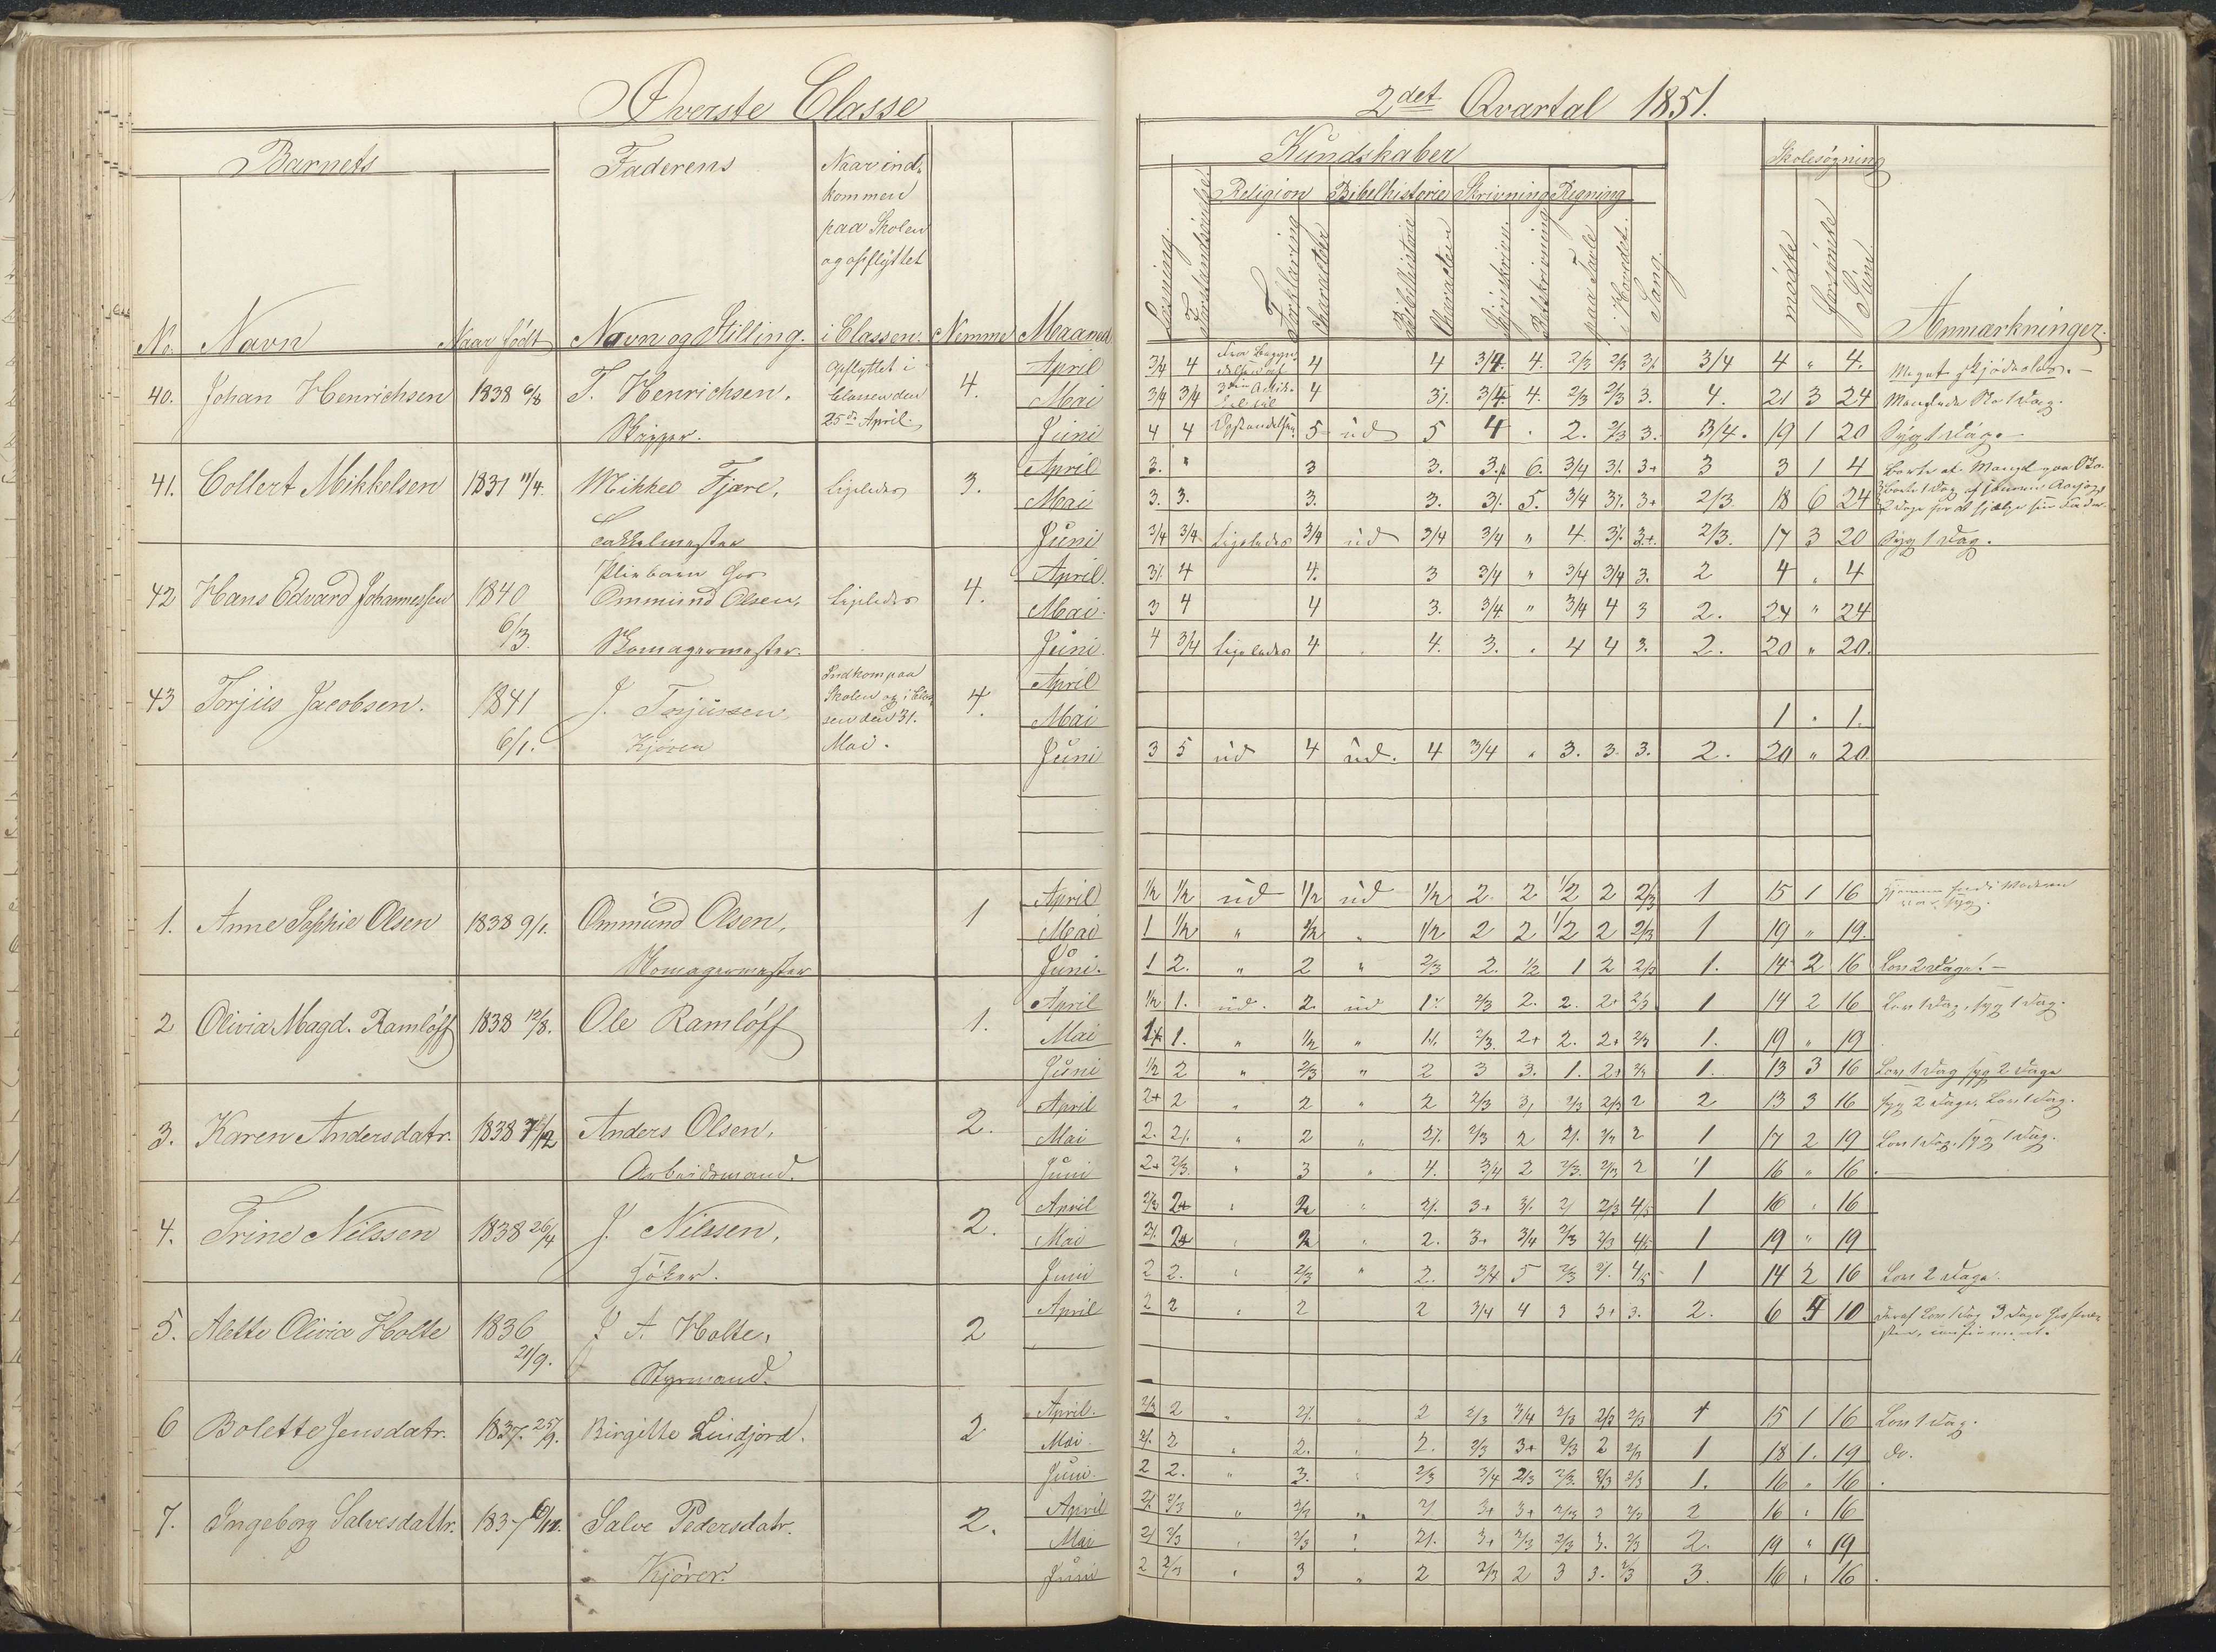 Øverste Classe
2det Qvartal 1851.
Barnets
Faderens
Naar ind-
kommen
paa Skolen
og opflyttet
i Classen.
No. Navn Naar født Navn og Stilling. Nemme Maaned
Kundskaber
Skolesøgning
Religion Bibelhistorie Skrivning Regning
Læsning. Forklaring Charakter Bibelhistorie paa Tavle i Hovedet. Sang. mødte forsømte Sum
Anmærkninger.
40. Johan Henrichsen 1838 6/8 T. Henrichsen. Opflyttet i 4. April 3/4 4 4 4 3/4. 4. 2/3 2/3 3/. 3/4 4 " 4. Meget skjødesløs.
Classen den Mai 3/4 3/4 4 3/. 3/4. 4. 2/3 2/3 3. 4. 21 3 24
Skipper. 25de April. Juni 4 4 5 ud 5 4 . 2. 2/3 3. 3/4. 19 1 20 Syg 1 Dag.
41. Collert Mikkelsen 1837 11/4. Mikkel Fjære, Ligeledes 3. April 3. " 3 3. 3. 6. 3/4 3/. 3+ 3 3 1 4
Mai 3. 3. 3. 3. 3/. 5. 3/4 3/. 3+ 2/3 18 6 24
Juni 3/4 3/4 Ligeledes 3/4 ud 3/4 3/4 " 4. 3/. 3+. 2/3. 17 3 20 Syg 1 Dag.
42 Hans Edvard Johannessen 1840 Pleiebarn hos April. 3/. 4 4. 3 3/4 " 3/4 3/4 3. 2 4 . 4
6/3. Ommund Olsen, Ligeledes 4. Mai. 3 4 4 3. 3/4. " 3/4 4 3 2. 24 " 24
Skomagermester. Juni. 4 3/4 Ligeledes 4 . 4. 3. . 4 4 3. 2. 20 " 20.
43 Torjus Jacobsen. 1841 J. Torjussen, Indkom paa 4. April
6/1. Kjører Skolen og i Clas-
sen den 31. Mai 1 . 1.
Mai. Juni 3 5 ud 4 ud. 4 3/4 " 3. 3. 3. 2. 20 " 20.
1. Anne Sophie Olsen 1838 9/1. Ommund Olsen, 1 April 1/2 1/2 ud 1/2 ud 1/2 2. 2 1/2 2 2/3 1 15 1 16 hjemme fordi Moderen
var syg.
Mai 1 1/2 " 1/2 " 1/2 2 2 1/2 2 2/3 1 19 " 19.
Skomagermester Juni. 1 2. " 2 " 2/3 2. 1/2 1 2 2/3 1. 14 2 16 Lov 2 Dage.
2 Olivia Magd. Ramløff 1838 12/8. Ole Ramløff 1. April 1/2 1. ud. 2. ud 1/. 2/3 2. 2. 2+ 2/3 1 14 2 16 Lov 1 Dag, syg 1 Dag.
Mai 1+ 1. " 1/2 " 1/. 2/3. 2+ 2. 2+ 2/3 1. 19 " 19
Juni 1/2 2 " 2/3 " 2 3 3. 1. 2+ 2/3 1. 13 3 16 Lov 1 Dag syg 2 Dage
3. Karen Andersdatr. 1838 7/12 Anders Olsen, 2. April 2+ 2 " 2 " 2 2/3 3/ 2/3 2/3 2 2 13 3 16 syg 2 Dage, Lov 1 Dag.
Mai 2. 2/. " 2 " 2/. 2/3 2 2/. 2/3 2 1 17 2 19 Lov 1 Dag. syg 1 Dag.
Arbeidsmand. Juni 2+ 2/3. " 3 " 4. 3/4 2 2/3. 2/3 2 1 16 " 16.
4. Trine Nilssen 1838 26/4 J. Nilssen, 2. April 2/3 2+ " 2 " 2/. 3+ 3/. 2/ 2/3 4/5 1 16 " 16
Mai 2/. 2+ " 2 " 2. 3+ 3/4 2/3 2/3 4/5 1 19 " 19
Høker. Juni 2 2. " 2/3 " 2. 3/4 5 2/3 2/. 4/5 1 14 2 16 Lov 2 Dage.
5. Alette Olivia Holte 1836 J A. Holte, 2 April 2 2 " 2 2 3/4 4 3 3+ 3. 2. 6 4 10
21/9. Styrmand.
6 Bolette Jensdatr. 1837. 25/9. Birgitte Lindjord. 2 April. 2/3 2 " 2/. 2 2/3 3/4 2/3 2/3 2/3 1 15 1 16 Lov 1 Dag.
Mai 2/. 2 " 2. " 2. 2/3 3+ 2/3 2 2/3 1 18 1. 19 do.
Juni. 2 2. " 3. " 2/3 3/4 2/3 2/3. 2/3 2/3 1. 16 " 16
7. Ingeborg Salvesdattr. 1837 6/12. Salve Pedersdatr. 2. April 2/. 2/3 " 2/3 " 2/ 3+ 3+ 2/3 3 2/3 2 16 " 16
Mai 2/ 2/3 " 2/3 " 2/. 3+ 2/3 2/3 3. 2/3 2. 19 " 19
Kjører. Juni 2 2/3 " 3 " 2 2/3 2 3 3. 2/3 3. 16 " 16.